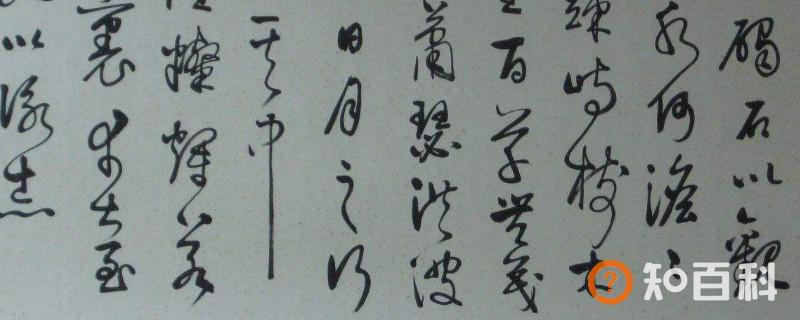 碣石以觀
水何澹
竦峙樹木
百草豐茂
蕭瑟洪波
日月之行
其中
燦爛若
裏幸甚至
以詠志
知百科